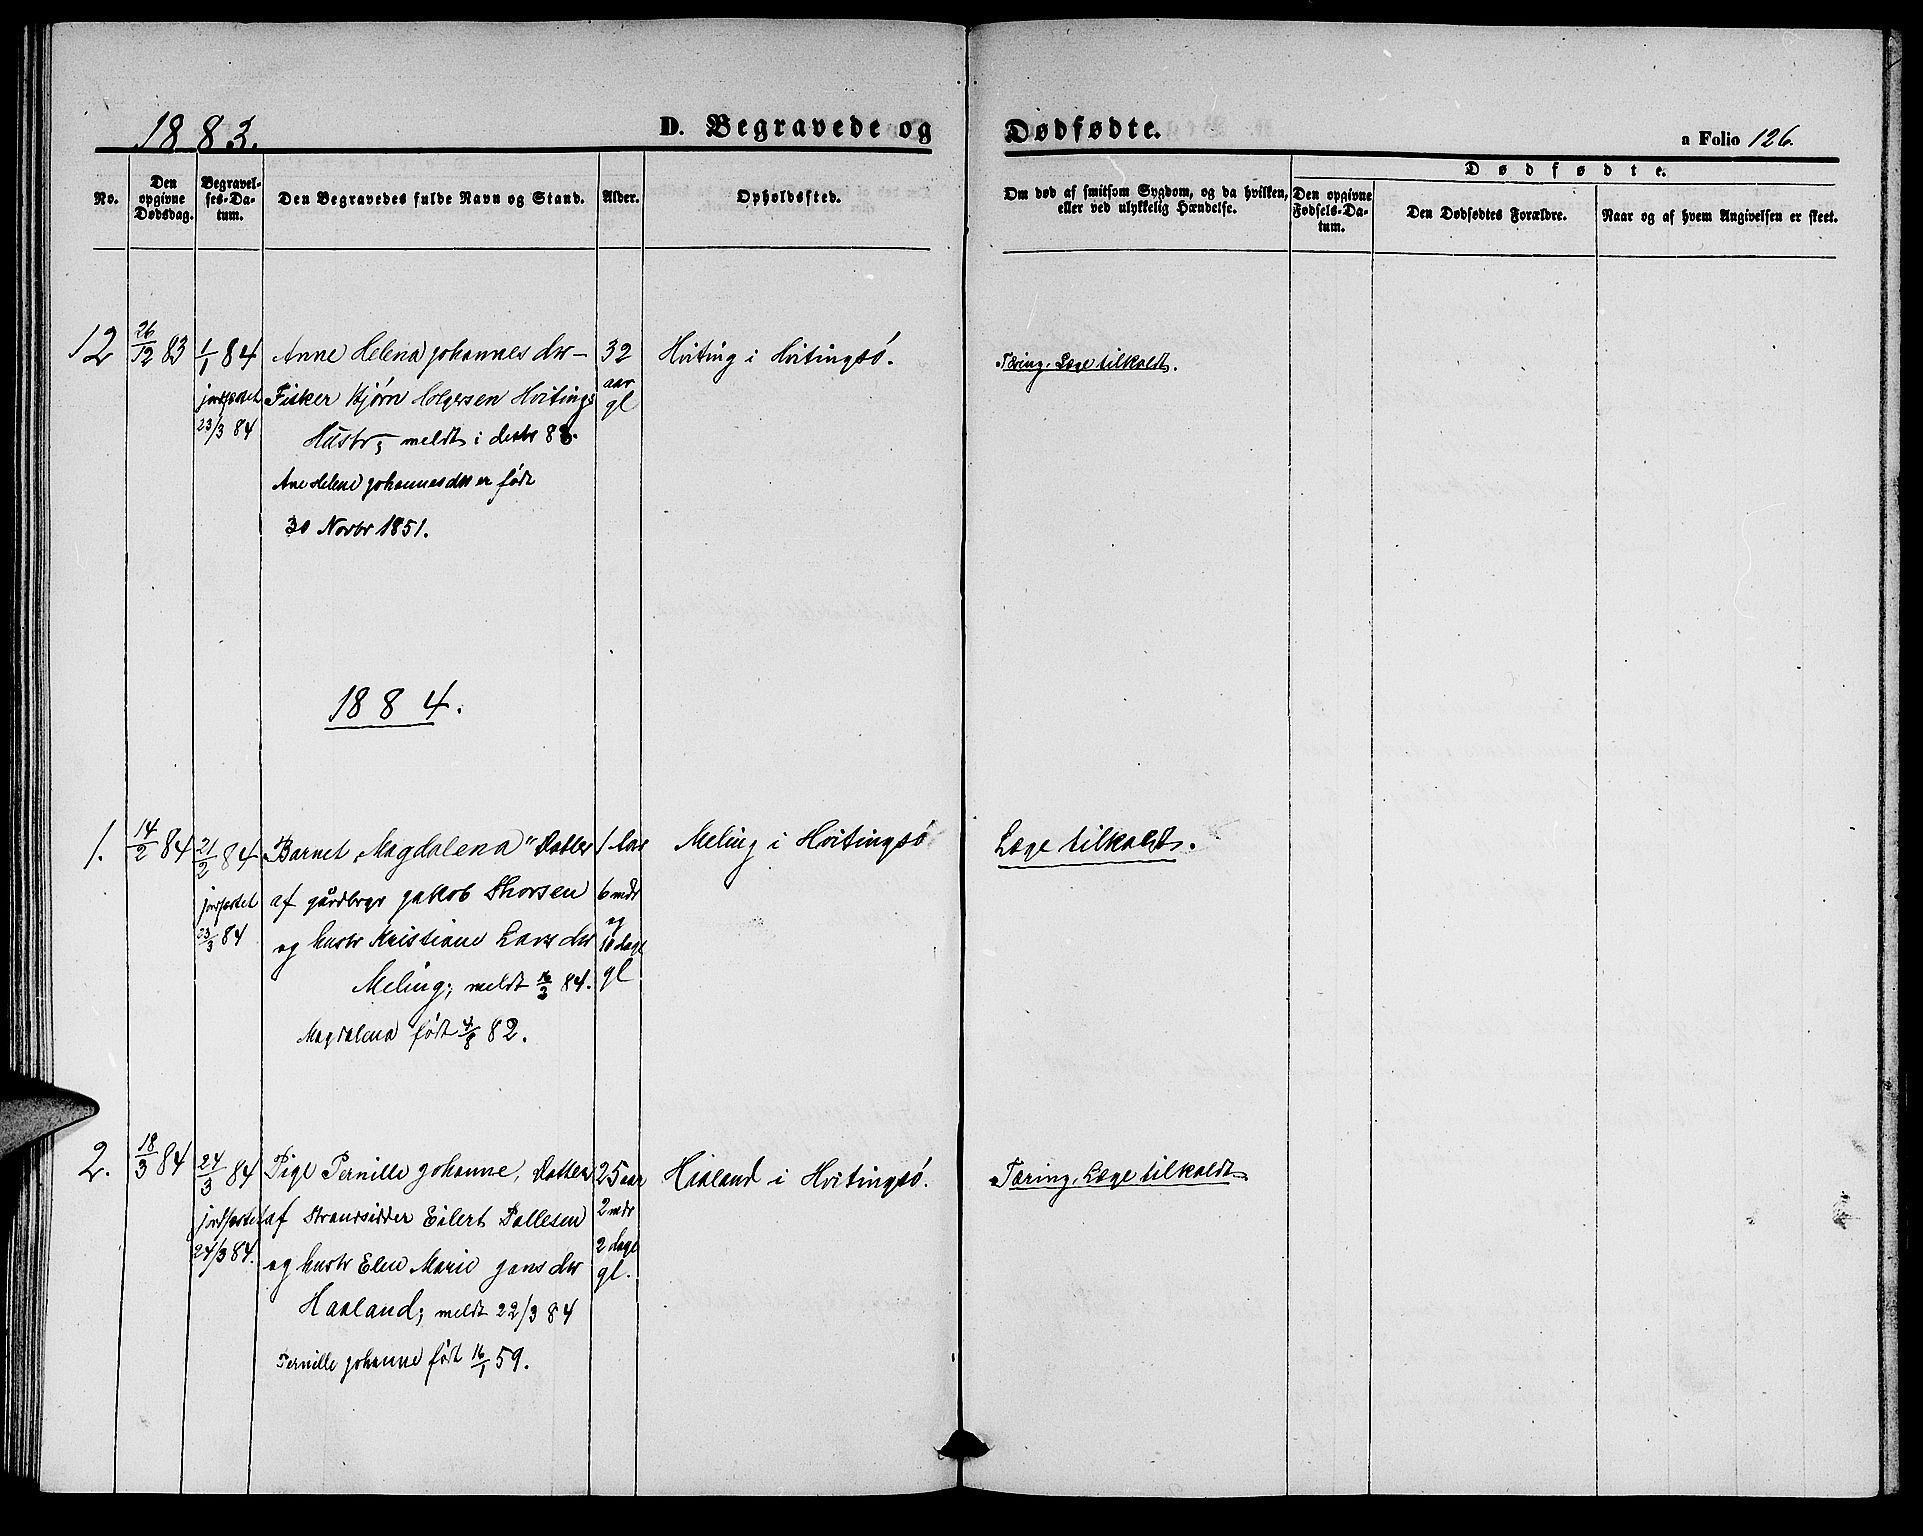 1883.
D. Begravede og Dødfødte.
a Folio 126.
No.
Den opgivne Dødsdag.
Begravelses-Datum.
Den Begravedes fulde Navn og Stand.
Alder.
Opholdssted.
Om død af smitsom Sygdom, og da hvilken,
eller ved ulykkelig Hændelse.
Dødfødte.
Den opgivne Fødsels-Datum.
Den Dødfødtes Forældre.
Naar og af hvem Angivelsen er skeet.
12 26/12 83 1/1 84 Anne Helena Johannes dtr – 32 Hviting i Hvitingsö. Tæring. Læge tilkaldt.
jordfæstet Fisker Bjørn Holgersen Hvitings aar
23/3 84 Hustr; meldt i decbr 83. gl
Ane Helene Johannesdtr er född
30 Novbr 1851.
1884.
1. 14/2 84 21/2 84 Barnet Magdalena" Datter 1 Aar Meling i Hvitingsö Læge tilkaldt.
jordfæstet af gårdbrgr Jakob Thorsen 6 mdr
23/3 84 og hustr Kristiane Lars dtr og 10 dage
Meling; meldt 16/2 84. gl
Magdalena född 4/8 82.
2. 18/3 84 24/3 84 Pige Pernille Johanne, Datter 25 aar Haaland i Hvitingsö. Tæring, Læge tilkaldt
jordfæstet af Strandsidder Eilert Pallesen 2 mdr
24/3 84. og hustr Elen Marie Jans dtr 2 dage
Haaland; meldt 22/3 84 gl.
Pernille Johanne född 16/1 59.